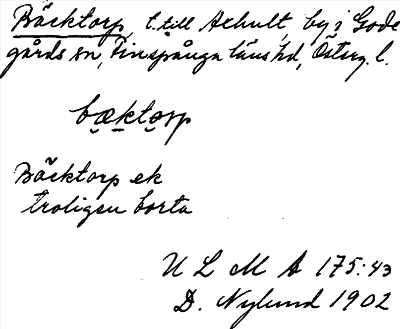 Bäcktorp, t. till Achult, by i Gode
gårds sn, Finspånga läns hd, Österg. l.
bæktorp
Bäcktorp ek
troligen borta
U L M A 175:43
D. Nylund 1902